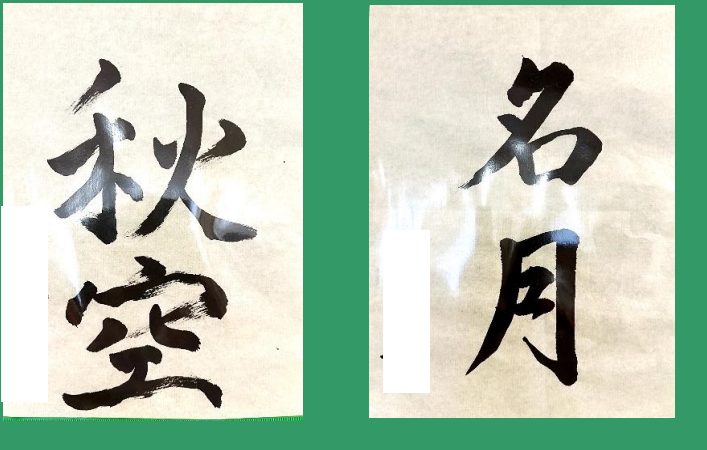 秋空
名月